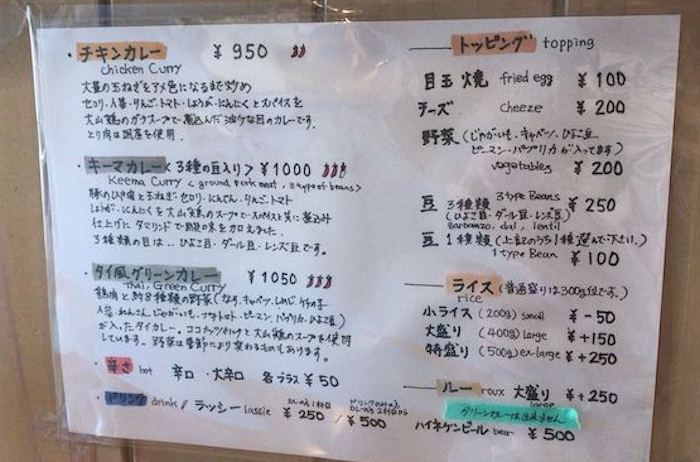 ・チキンカレー ¥950
Chicken Curry
大量の玉ねぎをアメ色になるまで炒め
セロリ・人参・りんご・トマト・しょうが・にんにくとスパイスを
大山鶏のガラスープで煮込んだ油ケな目のカレーです。
とり肉は銘産を使用。
・キーマカレー<3種の豆入り> ¥1000
Keema Curry < ground pork meat, 3 type of beans>
豚のひき肉と玉ねぎ・セロリ・にんじん・りんご、トマト
しょうが・にんにくを大山鶏のスープで・スパイスと共に煮込み
仕上げにタマリンドで酸味を加えました。
3種類の豆は・・ひよこ豆・ダール豆・レンズ豆です。
・タイ風グリーンカレー ¥1050
Thai, Green Curry
鶏肉と約8種類の野菜(なす、キャベツ・しめじ・
人参・れんこん、じゃがいも・プチトマト・ピーマン・パプリカ、ひよこ豆)
が入ったタイカレー。ココナッツミルクと大山鶏のスープを使用
しています。野菜は季節により変わるものもあります。
・辛さ hot 辛口・大辛口 各プラス ¥50
・ドリンク drink // ラッシー lassie ¥250 / ¥500
トッピング topping
目玉焼 fried egg ¥100
チーズ cheeze ¥200
野菜 (じゃがいも・キャベツ・ひよこ豆
ピーマン・パプリカが入ってます)
vegetables ¥200
豆 3種類 3 type Beans ¥250
(ひよこ豆・ダール豆・レンズ豆)
Garbanzo, dal, lentil
豆 1種類 (上記のうち1種選んで下さい。)
1 type Bean ¥100
ライス (普通盛りは300g位です。)
rice
小ライス (200g) small ¥-50
大盛り (400g) large ¥+150
特盛り (500g) ex-large ¥+250
ルー roux 大盛り ¥+250
large
グリーンカレーは出来ません
ハイネケンビール beer ¥500